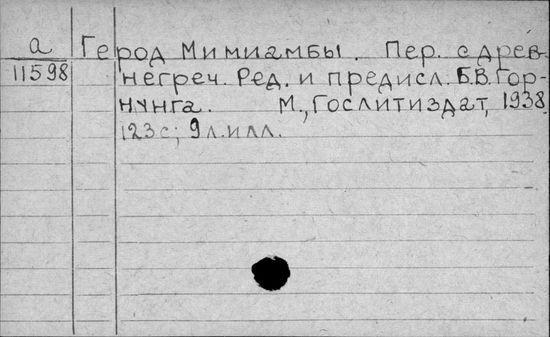 а Герод Мимиамбы. Пер. с древ-
11598 негреч. Ред. и предисл. Б.В. Гор-
нунга. М., Гослитиздат, 1938
123 с; 9 л. илл.